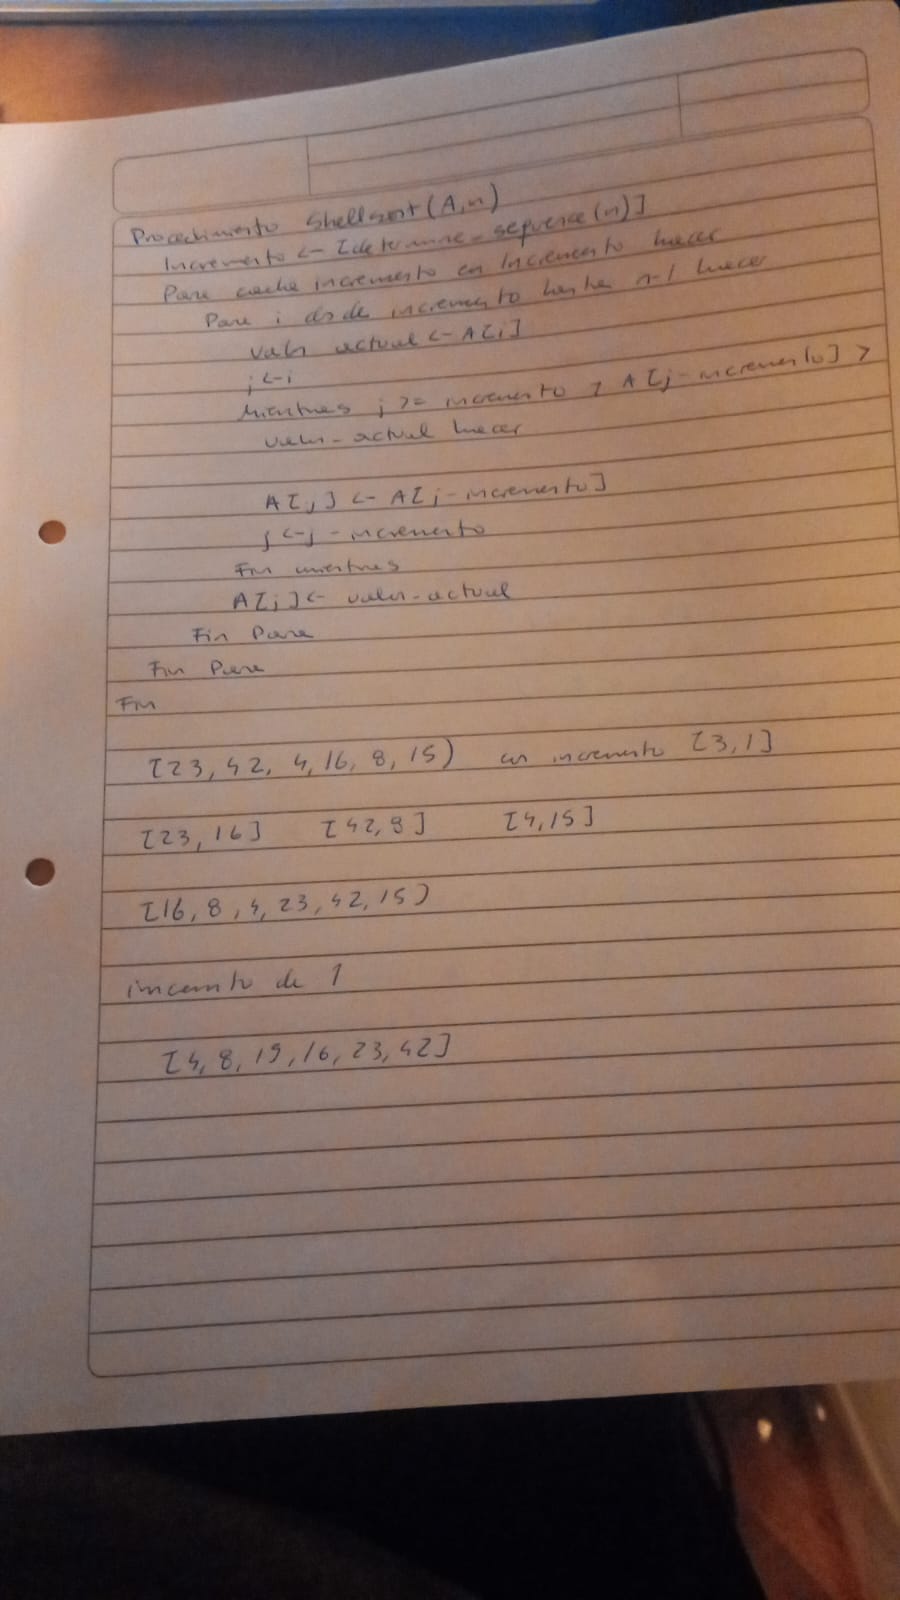 Procedimiento Shellsort (A,n)
Incremento <- [determine_sequence(n)]
Para cada incremento en Incremento hacer
Para i desde incremento hasta n-1 hacer
valor actual <- A[i]
j <- i
Mientras j >= incremento y A[j-incremento] >
valor-actual hacer
A[j] <- A[j-incremento]
j <- j - incremento
Fin mientras
A[j] <- valor-actual
Fin Para
Fin Para
Fin
[23, 42, 4, 16, 8, 15) en incremento [3,1]
[23, 16] [42, 8] [4,15]
[16, 8, 4, 23, 42, 15)
incemnto de 1
[4, 8, 15, 16, 23, 42]